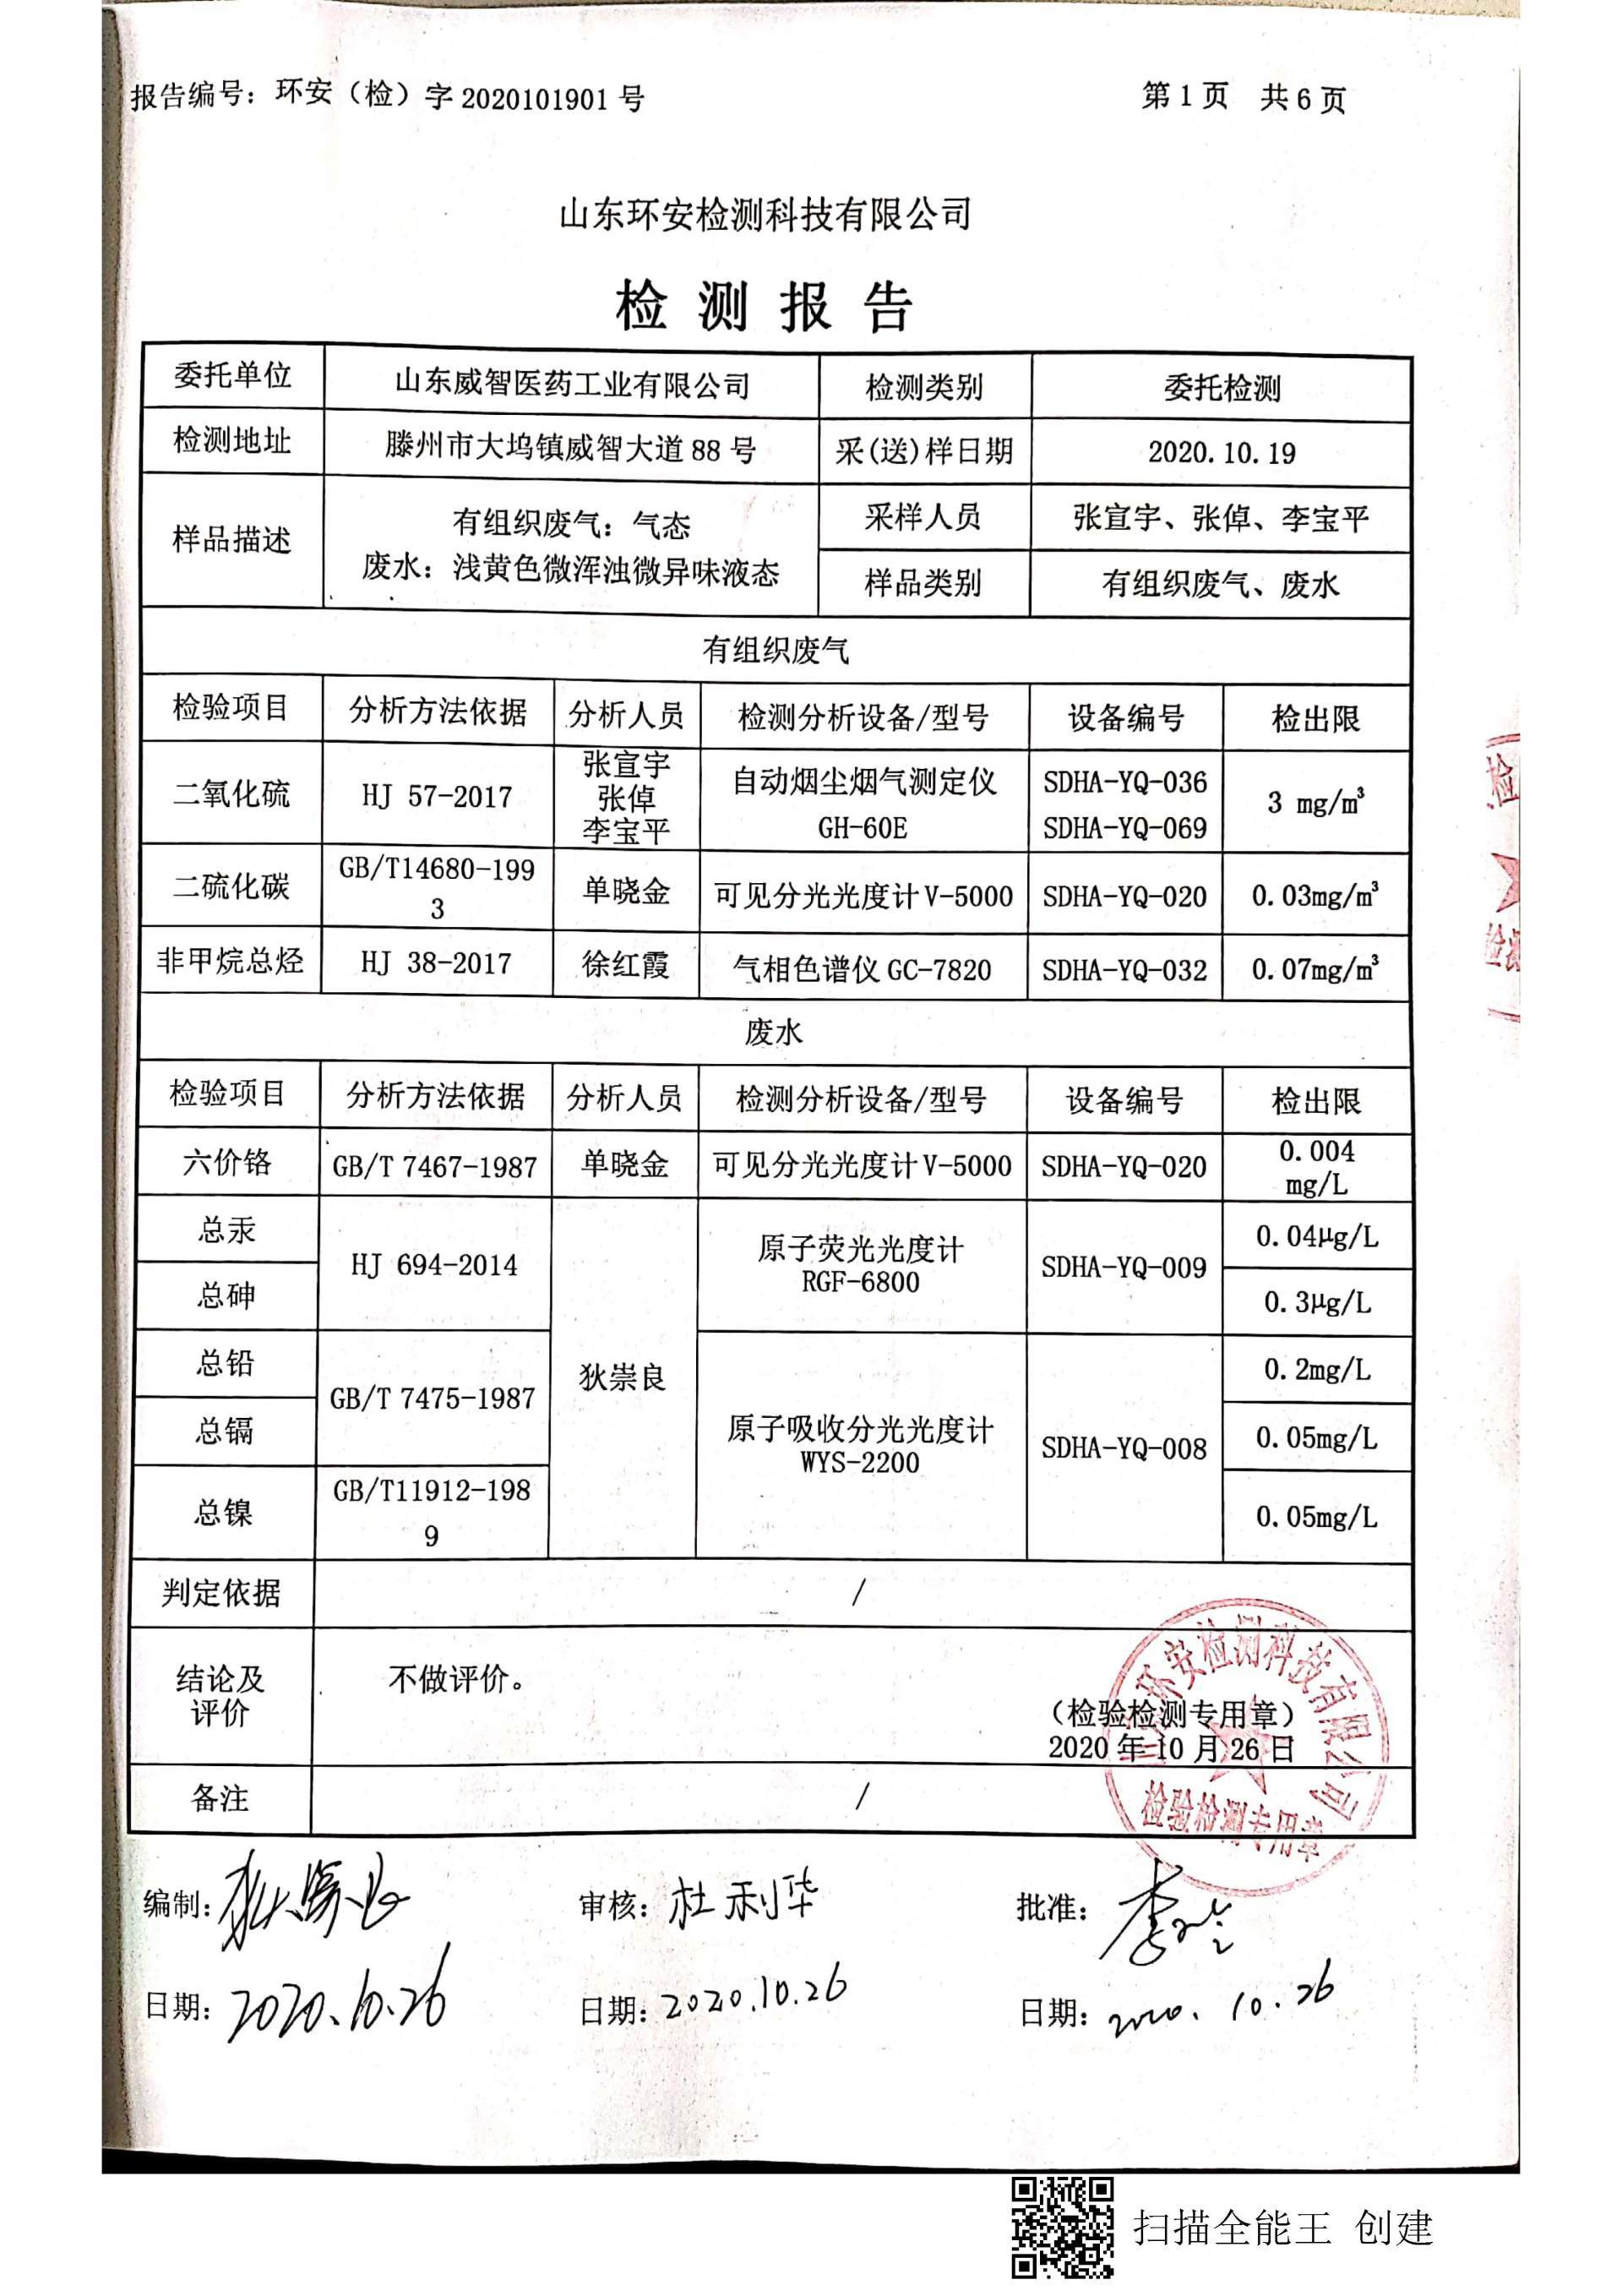 报告编号：环安（检）字 2020101901 号
第 1 页 共 6 页
山东环安检测科技有限公司
检 测 报 告
委托单位 山东威智医药工业有限公司 检测类别 委托检测
检测地址 滕州市大坞镇威智大道 88 号 采(送)样日期 2020.10.19
样品描述
有组织废气：气态
废水：浅黄色微浑浊微异味液态
采样人员 张宣宇、张倬、李宝平
样品类别 有组织废气、废水
有组织废气
检验项目 分析方法依据 分析人员 检测分析设备/型号 设备编号 检出限
二氧化硫 HJ 57-2017
张宣宇
张倬
李宝平
自动烟尘烟气测定仪
GH-60E
SDHA-YQ-036
SDHA-YQ-069
3 mg/m³
二硫化碳
GB/T14680-199
3
单晓金 可见分光光度计 V-5000 SDHA-YQ-020 0.03mg/m³
非甲烷总烃 HJ 38-2017 徐红霞 气相色谱仪 GC-7820 SDHA-YQ-032 0.07mg/m³
废水
检验项目 分析方法依据 分析人员 检测分析设备/型号 设备编号 检出限
六价铬 GB/T 7467-1987 单晓金 可见分光光度计 V-5000 SDHA-YQ-020
0.004
mg/L
总汞
总砷
HJ 694-2014
原子荧光光度计
RGF-6800
SDHA-YQ-009
0.04μg/L
0.3μg/L
总铅
总镉
GB/T 7475-1987
总镍
GB/T11912-198
9
狄崇良
原子吸收分光光度计
WYS-2200
SDHA-YQ-008
0.2mg/L
0.05mg/L
0.05mg/L
判定依据 /
结论及
评价
不做评价。
（检验检测专用章）
2020 年 10 月 26 日
备注 /
环安检测科技有限公司
检验检测专用章
编制：
审核：杜利华
批准：
日期：2020.10.26
日期：2020.10.26
日期：2020.10.26
扫描全能王 创建